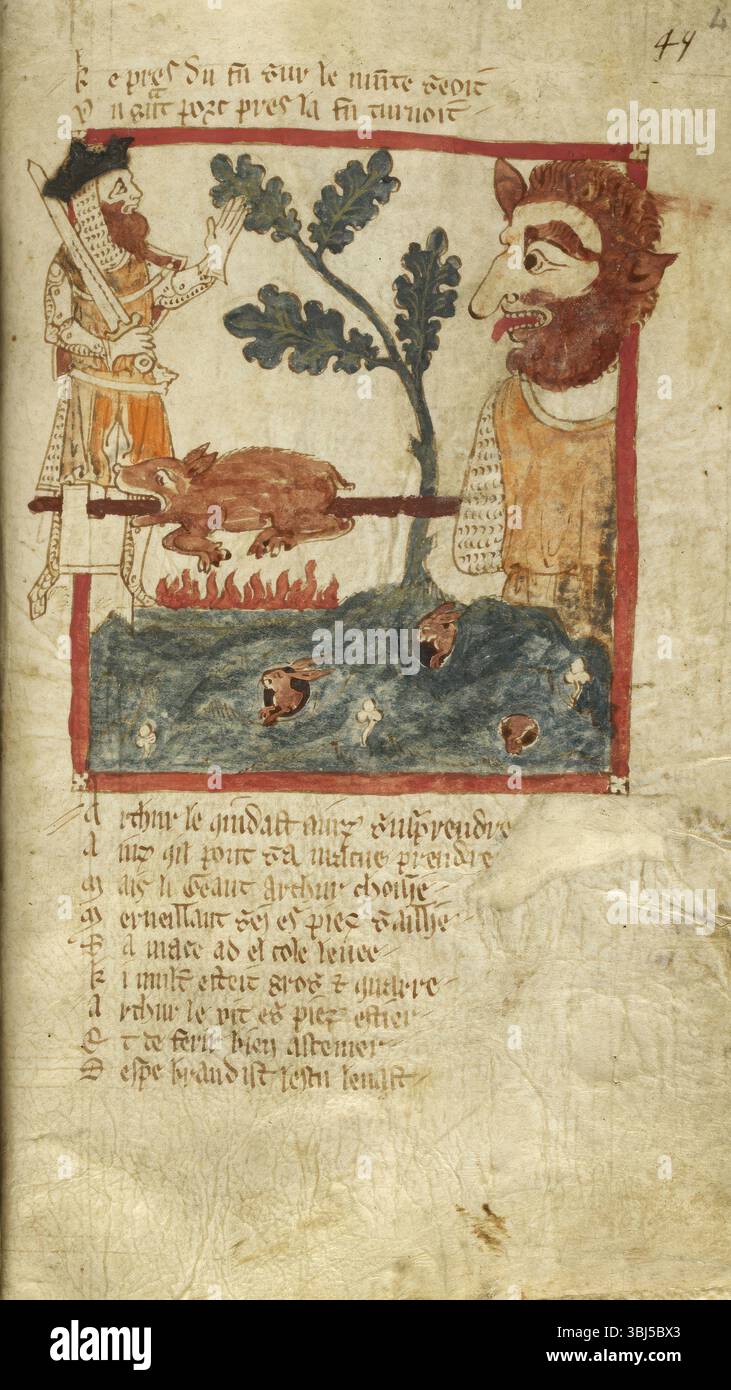 49
K e pres du fu sur le munt seoit
U n gnt porc pres la fu turnoit
A rthur le quidast ainz susprendre
A inz qil pout sa macue prendre
M ais li Geant arthur choisie
M erueillant sei es piez saillie
S a mace ad el cole leuee
K i mult esteit gros & quarre
A rthur le vit es piez ester
E t de ferir bien astemer
S espe brandist lescu leuast
alamy
Image ID: 3BJ5BX3
www.alamy.com